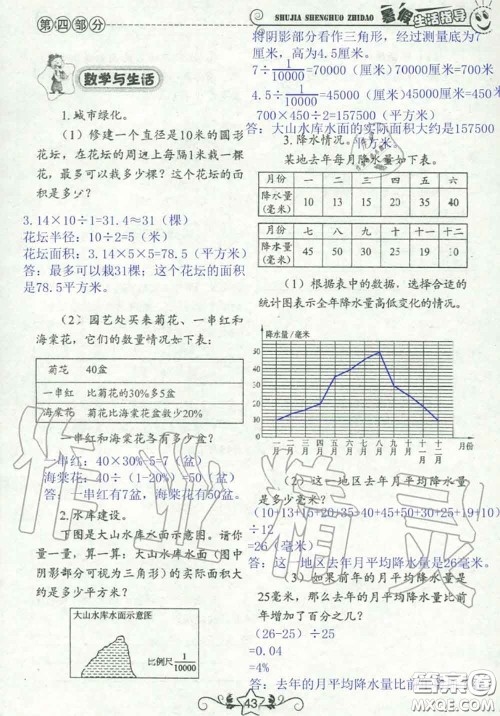 第四部分
SHUJIA SHENGHUO ZHIDAO
生活指导
数学与生活
1.城市绿化。
(1)修建一个直径是10米的圆形
花坛，在花坛的周边上每隔1米栽一棵
花，最多可以栽多少棵？这个花坛的面
积是多少？
3.14×10÷1=31.4≈31（棵）
花坛半径：10÷2=5（米）
花坛面积：3.14×5×5=78.5（平方米）
答：最多可以栽31棵；这个花坛的面积
是78.5平方米。
(2)园艺处买来菊花、一串红和
海棠花，它们的数量情况如下表：
菊花 40盆
一串红 比菊花的30%多5盆
海棠花 菊花比海棠花盆数少20%
一串红和海棠花各有多少盆？
一串红：40×30%-5=7（盆）
海棠花：40÷（1-20%）=50（盆）
答：一串红有7盆，海棠花有50盆。
2.水库建设。
下图是大山水库水面示意图。请你
量一量，算一算：大山水库水面（图中
阴影部分可视为三角形）的实际面积大
约是多少平方米？
大山水库水面示意图
比例尺 1/10000
将阴影部分看作三角形，经过测量底为7
厘米，高为4.5厘米。
7÷1/10000=70000（厘米）70000厘米=700米
4.5÷1/10000=45000（厘米）45000厘米=450米
700×450÷2=157500（平方米）
答：大山水库水面的实际面积大约是157500
平方米。
3.降水情况。
某地去年每月降水量如下表。
月份 一 二 三 四 五 六
降水量（毫米） 10 13 15 20 35 40
月份 七 八 九 十 十一 十二
降水量（毫米） 45 50 30 25 19 10
(1)根据表中的数据，选择合适的
统计图表示全年降水量高低变化的情况。
降水量/毫米
50
40
30
20
10
一月 二月 三月 四月 五月 六月 七月 八月 九月 十月 十一月 十二月 月份
(2)这一地区去年月平均降水量
是多少毫米？
(10+13+15+20+35+40+45+50+30+25+19+10)
÷12
=26（毫米）
答：这一地区去年月平均降水量是26毫米。
(3)如果前年的月平均降水量是
25毫米，那么去年的月平均降水量比前
年增加了百分之几？
(26-25)÷25
=0.04
=4%
答：去年的月平均降水量比前
43
作业精灵
答案圈
MXQE.COM